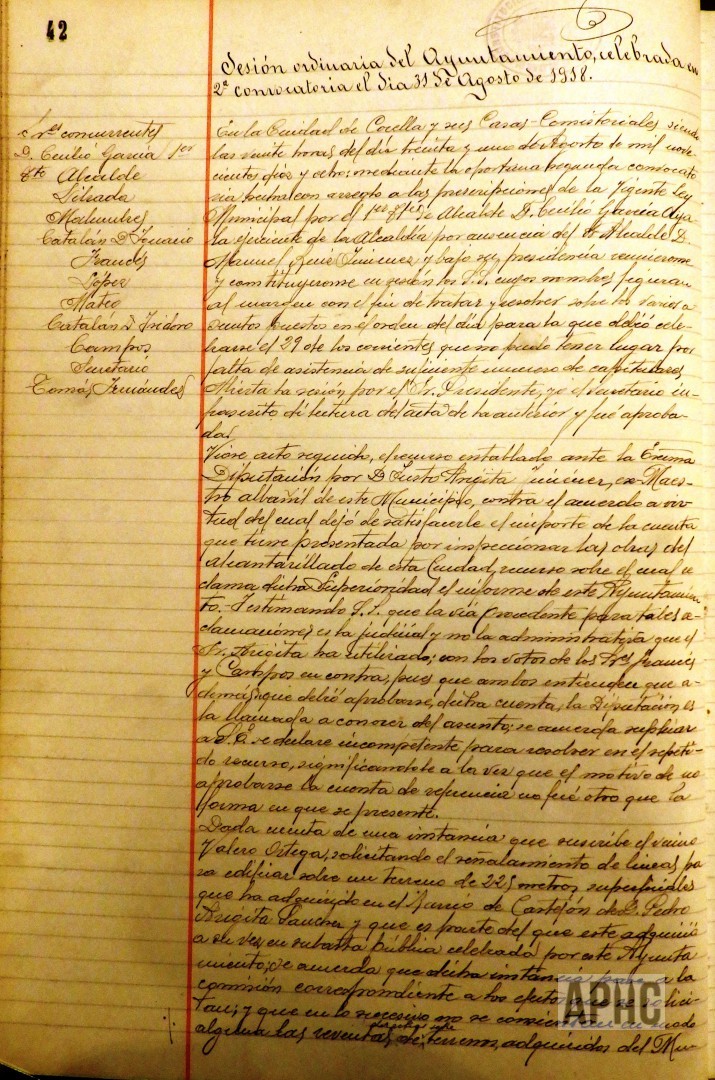 42
Sesión ordinaria del Ayuntamiento, celebrada en
2ª convocatoria el dia 31 de Agosto de 1918.
Sres concurrentes
D. Cecilio García 1er
tte Alcalde
Malumbres
Catalán D. Ignacio
Francés
López
Mateo
Catalán D. Isidoro
Campos
Secretario
Tomás Fernández
En la Ciudad de Corella y sus Casas-Consistoriales, siendo
las veinte horas del día treinta y uno de Agosto de mil nove-
cientos diez y ocho: mediante la oportuna segunda convocato-
ria hecha con arreglo a las prescripciones de la vigente Ley
Municipal por el 1er tte de Alcalde D. Cecilio García Aya-
la ejerciente de la Alcaldía por ausencia del Sr. Alcalde D.
Manuel Jimenez y bajo su presidencia reunieronse
y constituyeronse en sesión los S.S. cuyos nombres figuran
al margen con el fin de tratar y resolver sobre los varios a-
suntos puestos en el orden del día para la que debió cele-
brarse el 29 de los corrientes que no pudo tener lugar por
falta de asistencia de suficiente numero de capitulares.
Abierta la sesión por el Sr. Presidente, yo el Secretario in-
frascrito di lectura del acta de la anterior y fué aproba-
da.
Vióse acto seguido, el recurso entablado ante la Excma
Diputación por D. Justo Arigita Jiménez, ex-Maes-
tro albañil de este Municipio, contra el acuerdo a vir-
tud del cual dejó de satisfacerle el importe de la cuenta
que tiene presentada por inspeccionar las obras del
alcantarillado de esta Ciudad, recurso sobre el cual re-
clama dicha Superioridad el informe de este Ayuntamien-
to. Testimando S.S. que la vía procedente para tales re-
clamaciones es la judicial y no la administrativa que el
Sr. Arigita ha utilizado; con los votos de los Sres Francés
y Campos en contra, pues que ambos entienden que a-
demás que debió aprobarse dicha cuenta, la Diputación es
la llamada a conocer del asunto; se acuerda suplicar
a S.E. se declare incompetente para resolver en el repeti-
do recurso, significandole a la vez que el motivo de no
aprobarse la cuenta de referencia no fué otro que la
forma en que se presenta.
Dada cuenta de una instancia que suscribe el vecino
Valero Ortega, solicitando el señalamiento de lineas pa-
ra edificar sobre un terreno de 225 metros superficiales
que ha adquirido en el Barrio de Castejón de D. Pedro
Arigita Sanchez y que es parte del que este adquirió
a su vez en subasta pública celebrada por este Ayunta-
miento; se acuerda que dicha instancia pase a la
comisión correspondiente a los efectos que se solici-
tan; y que en lo sucesivo no se consientan en modo
alguno las reventas de terrenos adquiridos del Mu-
APHC